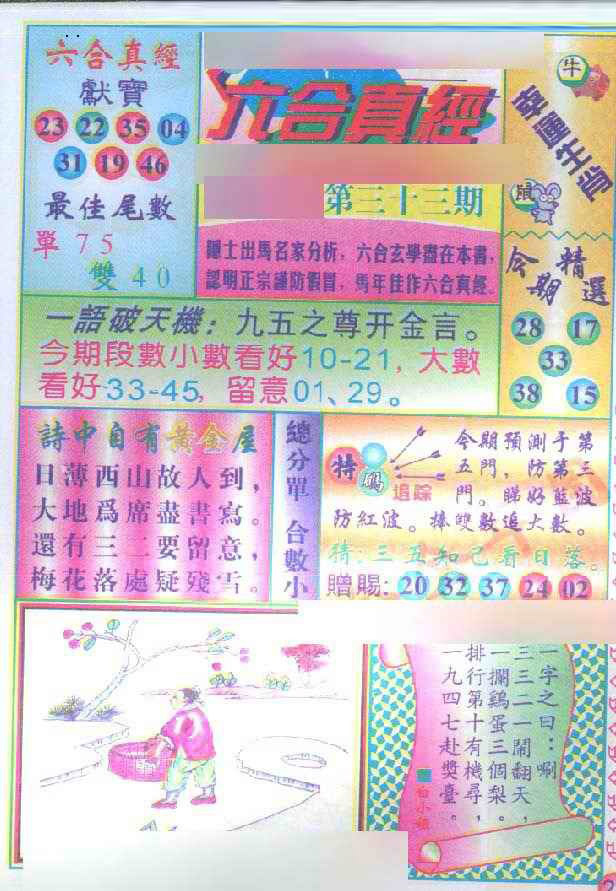 六合真經
獻寶
23 22 35 04
31 19 46
最佳尾數
單75
雙40
六合真經
第三十三期
隱士出馬名家分析，六合玄學盡在本書，
認明正宗謹防假冒，馬年佳作六合真經。
牛
幸運生肖
鼠
今期精選
28 17
33
38 15
一語破天機：九五之尊开金言。
今期段數小數看好10-21，大數
看好33-45，留意01、29。
詩中自有黃金屋
日薄西山故人到，
大地爲席盡書寫。
還有三二要留意，
梅花落處疑殘雪。
總分單 合數小
特碼
追踪
今期預測于第
五門，防第三
門。睇好藍波
防紅波。捧雙數追大數。
猜：三五知己看日落。
贈賜：20 32 37 24 02
一字之曰：唰
三三二一鬧翻天，
一攔鷄蛋三個梨。
排行第十有機尋，
一九四七赴獎臺。
白小姐